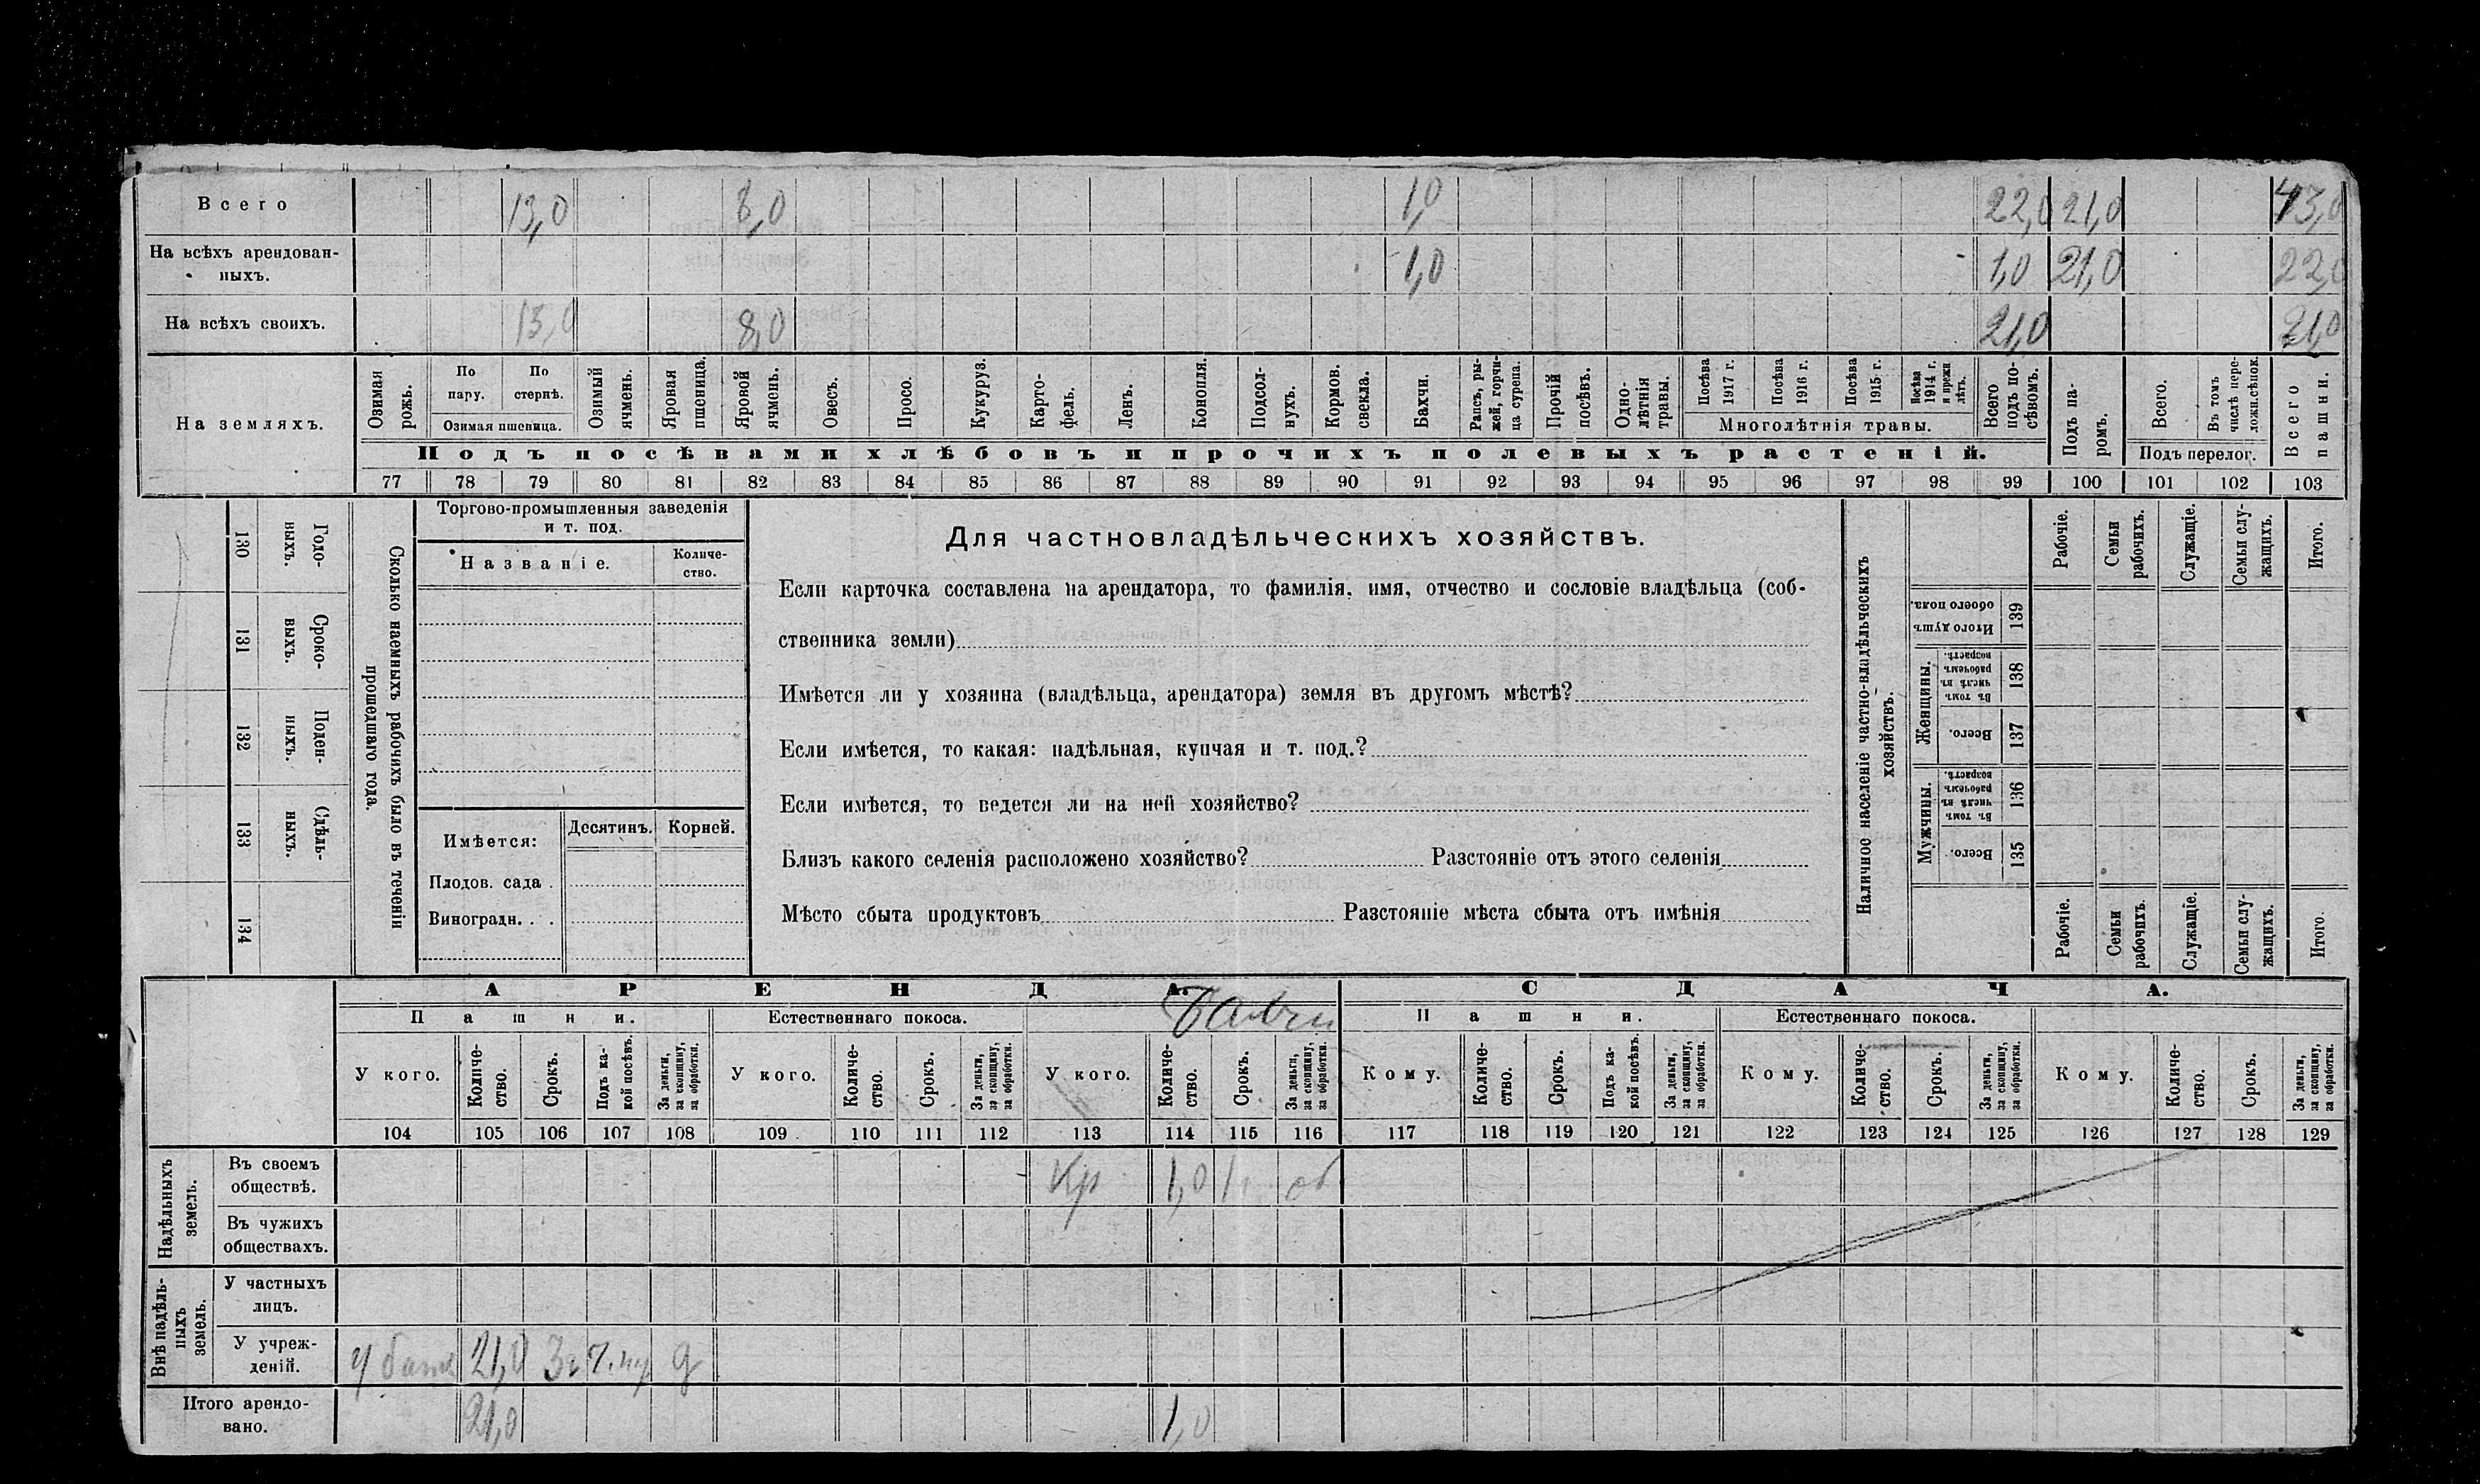 Всего 13,0 8,0 1,0 22,0 21,0 43,0
На всѣхъ арендован-
ныхъ. 1,0 1,0 21,0 22,0
На всѣхъ своихъ. 13,0 8,0 21,0 21,0
На земляхъ.
Озимая рожь.
По пару.
По стернѣ.
Озимая пшеница.
Озимый ячмень.
Яровая пшеница.
Яровой ячмень.
Овесъ.
Просо.
Кукуруз.
Карто-
фель.
Ленъ.
Конопля.
Подсол-
нухъ.
Кормов.
свекла.
Бахчи.
Рапсъ, ры-
жей, горчи-
ца сурепа.
Прочій
посѣвъ.
Одно-
лѣтнія
травы.
Посѣва
1917 г.
Посѣва
1916 г.
Посѣва
1915 г.
Посѣва
1914 г.
и прежн
лѣтъ.
Многолѣтнія травы.
Всего
подъ по-
сѣвомъ.
Подъ па-
ромъ.
Всего.
Въ томъ
числѣ пере-
ложн.сѣнок.
Подъ перелог.
Всего
пашни.
Подъ посѣвами хлѣбовъ и прочихъ полевыхъ растеній.
77 78 79 80 81 82 83 84 85 86 87 88 89 90 91 92 93 94 95 96 97 98 99 100 101 102 103
Сколько наемныхъ рабочихъ было въ теченіи
прошедшаго года.
Годо-
выхъ.
130
Сроко-
выхъ.
131
Поден-
ныхъ.
132
Сдѣль-
ныхъ.
133
134
Торгово-промышленныя заведенія
и т. под.
Названіе.
Количе-
ство.
Имѣется:
Десятинъ.
Корней.
Плодов. сада .
Виноградн. . .
Для частновладѣльческихъ хозяйствъ.
Если карточка составлена на арендатора, то фамилія, имя, отчество и сословіе владѣльца (соб-
ственника земли)
Имѣется ли у хозяина (владѣльца, арендатора) земля въ другомъ мѣстѣ?
Если имѣется, то какая: надѣльная, купчая и т. под.?
Если имѣется, то ведется ли на ней хозяйство?
Близъ какого селенія расположено хозяйство? Разстояніе отъ этого селенія
Мѣсто сбыта продуктовъ Разстояніе мѣста сбыта отъ имѣнія
Наличное населеніе частно-владѣльческихъ
хозяйствъ.
Рабочіе.
Семьи
рабочихъ.
Служащіе.
Семьи слу-
жащихъ.
Итого.
Итого душъ
обоего пола.
139
Женщины.
Въ томъ
числѣ въ
рабочемъ
возрастѣ.
138
Всего.
137
Мужчины.
Въ томъ
числѣ въ
рабочемъ
возрастѣ.
136
Всего.
135
Рабочіе.
Семьи
рабочихъ.
Служащіе.
Семьи слу-
жащихъ.
Итого.
АРЕНДА.
СДАЧА.
Пашни.
Естественнаго покоса.
Бахчи
Пашни.
Естественнаго покоса.
У кого.
Количе-
ство.
Срокъ.
Подъ ка-
кой посѣвъ.
За деньги,
за скопщину,
за обработки.
У кого.
Количе-
ство.
Срокъ.
За деньги,
за скопщину,
за обработки.
У кого.
Количе-
ство.
Срокъ.
За деньги,
за скопщину,
за обработки.
Кому.
Количе-
ство.
Срокъ.
Подъ ка-
кой посѣвъ.
За деньги,
за скопщину,
за обработки.
Кому.
Количе-
ство.
Срокъ.
За деньги,
за скопщину,
за обработки.
Кому.
Количе-
ство.
Срокъ.
За деньги,
за скопщину,
за обработки.
104 105 106 107 108 109 110 111 112 113 114 115 116 117 118 119 120 121 122 123 124 125 126 127 128 129
Надѣльныхъ
земель.
Въ своемъ
обществѣ. Кр 1,0
Въ чужихъ
обществахъ.
Внѣ надѣль-
ныхъ
земель.
У частныхъ
лицъ.
У учреж-
деній. 21,0 3г д
Итого арендо-
вано. 21,0 1,0